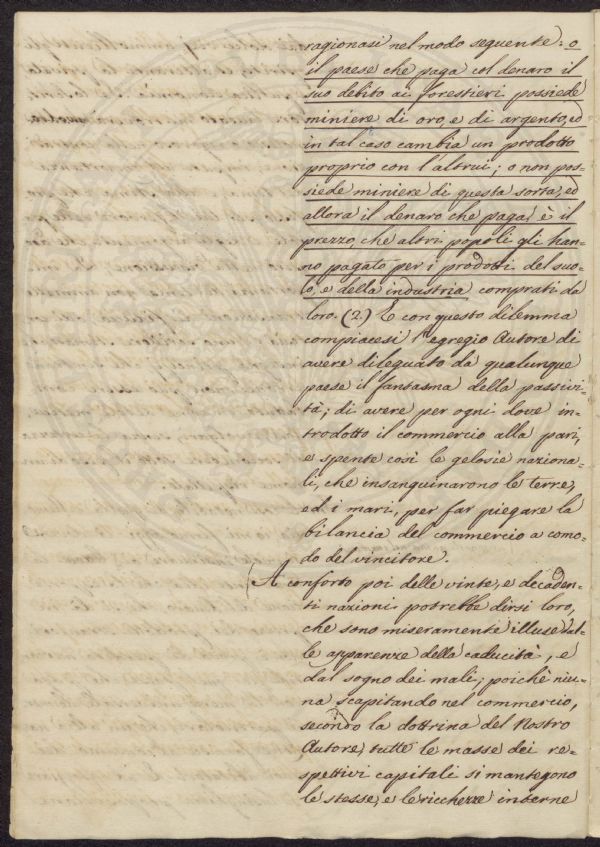 ragionasi nel modo seguente: o
il paese che paga col denaro il
suo debito ai forestieri possiede
miniere di oro, e di argento, ed
in tal caso cambia un prodotto
proprio con l'altrui; o non pos=
siede miniere di questa sorta, ed
allora il denaro che paga, è il
prezzo, che altri popoli gli han=
no pagato per i prodotti del suo=
lo, e della industria comprati da
loro. (2.) E con questo dilemma
compiacesi l'egregio Autore di
avere dileguato da qualunque
paese il fantasma della passivi=
tà; di avere per ogni dove in=
trodotto il commercio alla pari,
e spente così le gelosie naziona=
li, che insanguinarono le terre,
ed i mari, per far piegare la
bilancia del commercio a como=
do del vincitore.
A conforto poi delle vinte, e decaden=
ti nazioni potrebbe dirsi loro,
che sono miseramente illuse dal=
le apparenze della caducità, e
dal sogno dei mali; poichè niu=
na scapitando nel commercio,
secondo la dottrina del Nostro
Autore, tutte le masse dei re=
spettivi capitali si mantegono
le stesse, e le ricchezze interne